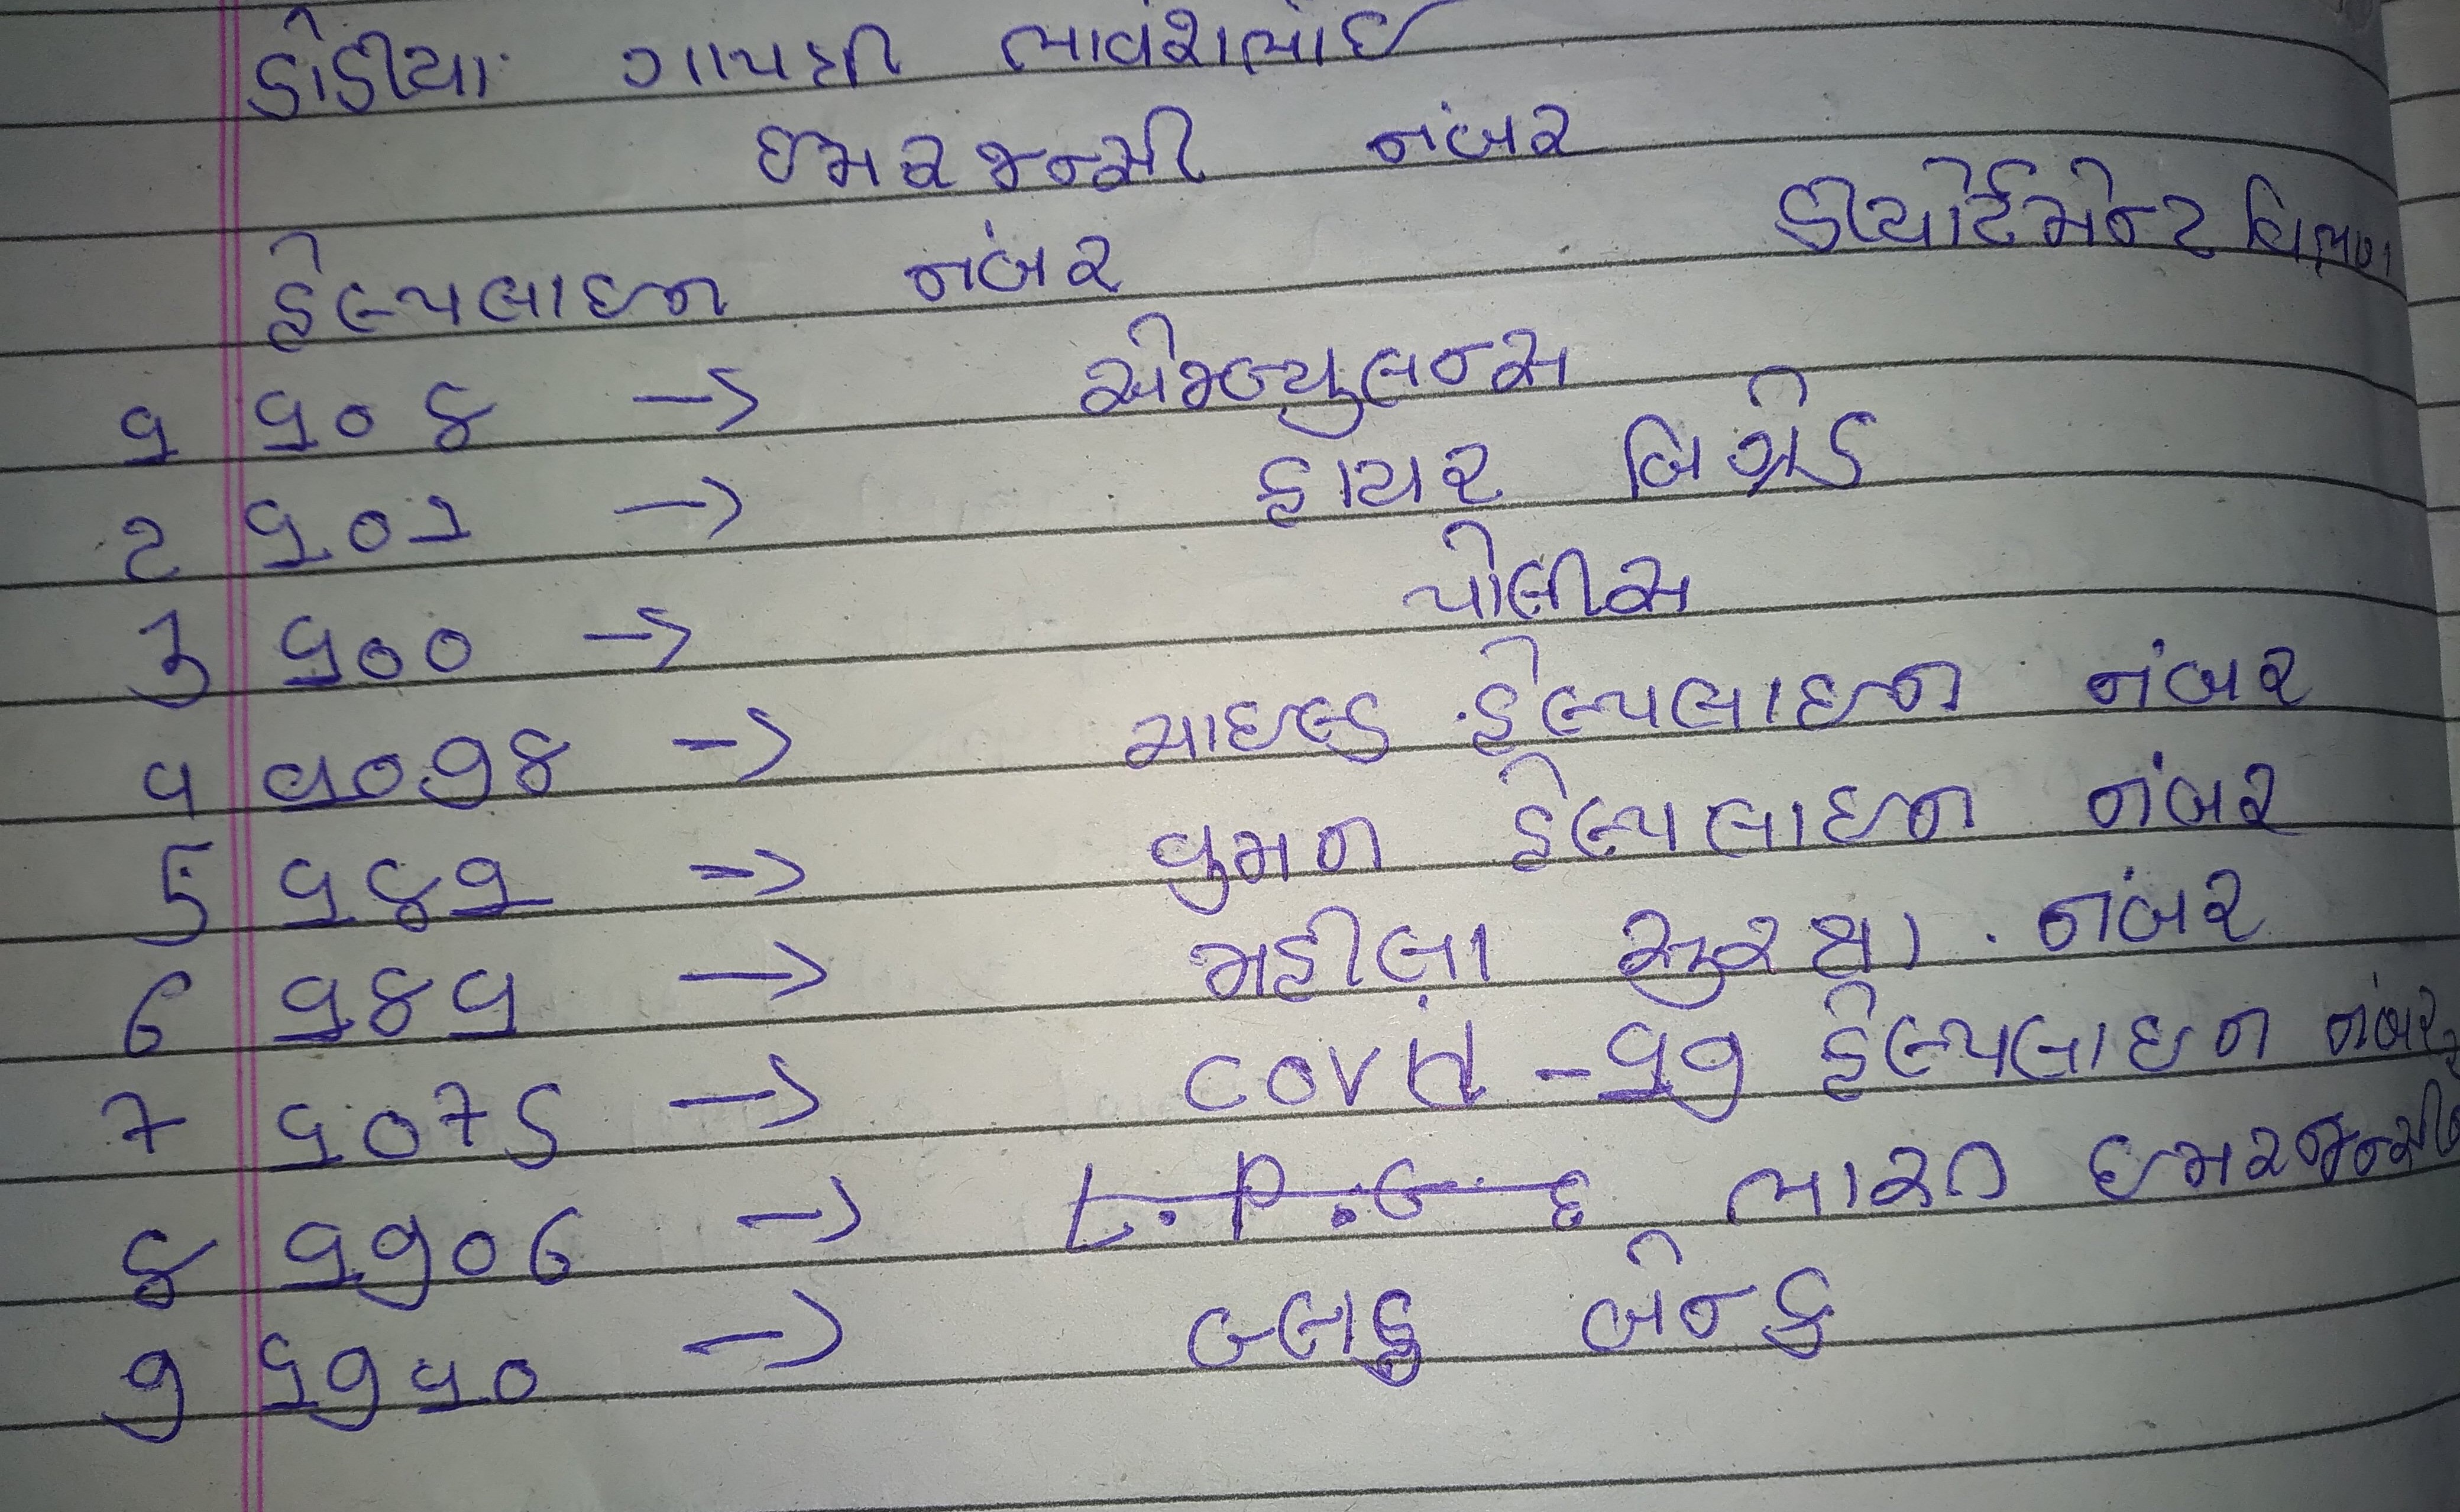 ડોડીયા ગાયત્રી ભાવેશભાઈ
ઈમરજન્સી નંબર
હેલ્પલાઇન નંબર ડીપાર્ટમેન્ટ વિભાગ
૧ ૧૦૪ → એમ્બ્યુલન્સ
૨ ૧૦૧ → ફાયર બ્રિગેડ
૩ ૧૦૦ → પોલીસ
૪ ૧૦૯૪ → ચાઇલ્ડ હેલ્પલાઇન નંબર
5 ૧૮૧ → વુમન હેલ્પલાઇન નંબર
6 ૧૮૧ → મહીલા સુરક્ષા નંબર
7 ૧૦૭5 → COVID-૧૯ હેલ્પલાઇન નંબર
૮ ૧૯૦6 → L.P.G ભારત ઇમરજન્સી
૯ ૧૯૧૦ → બ્લડ બેન્ક